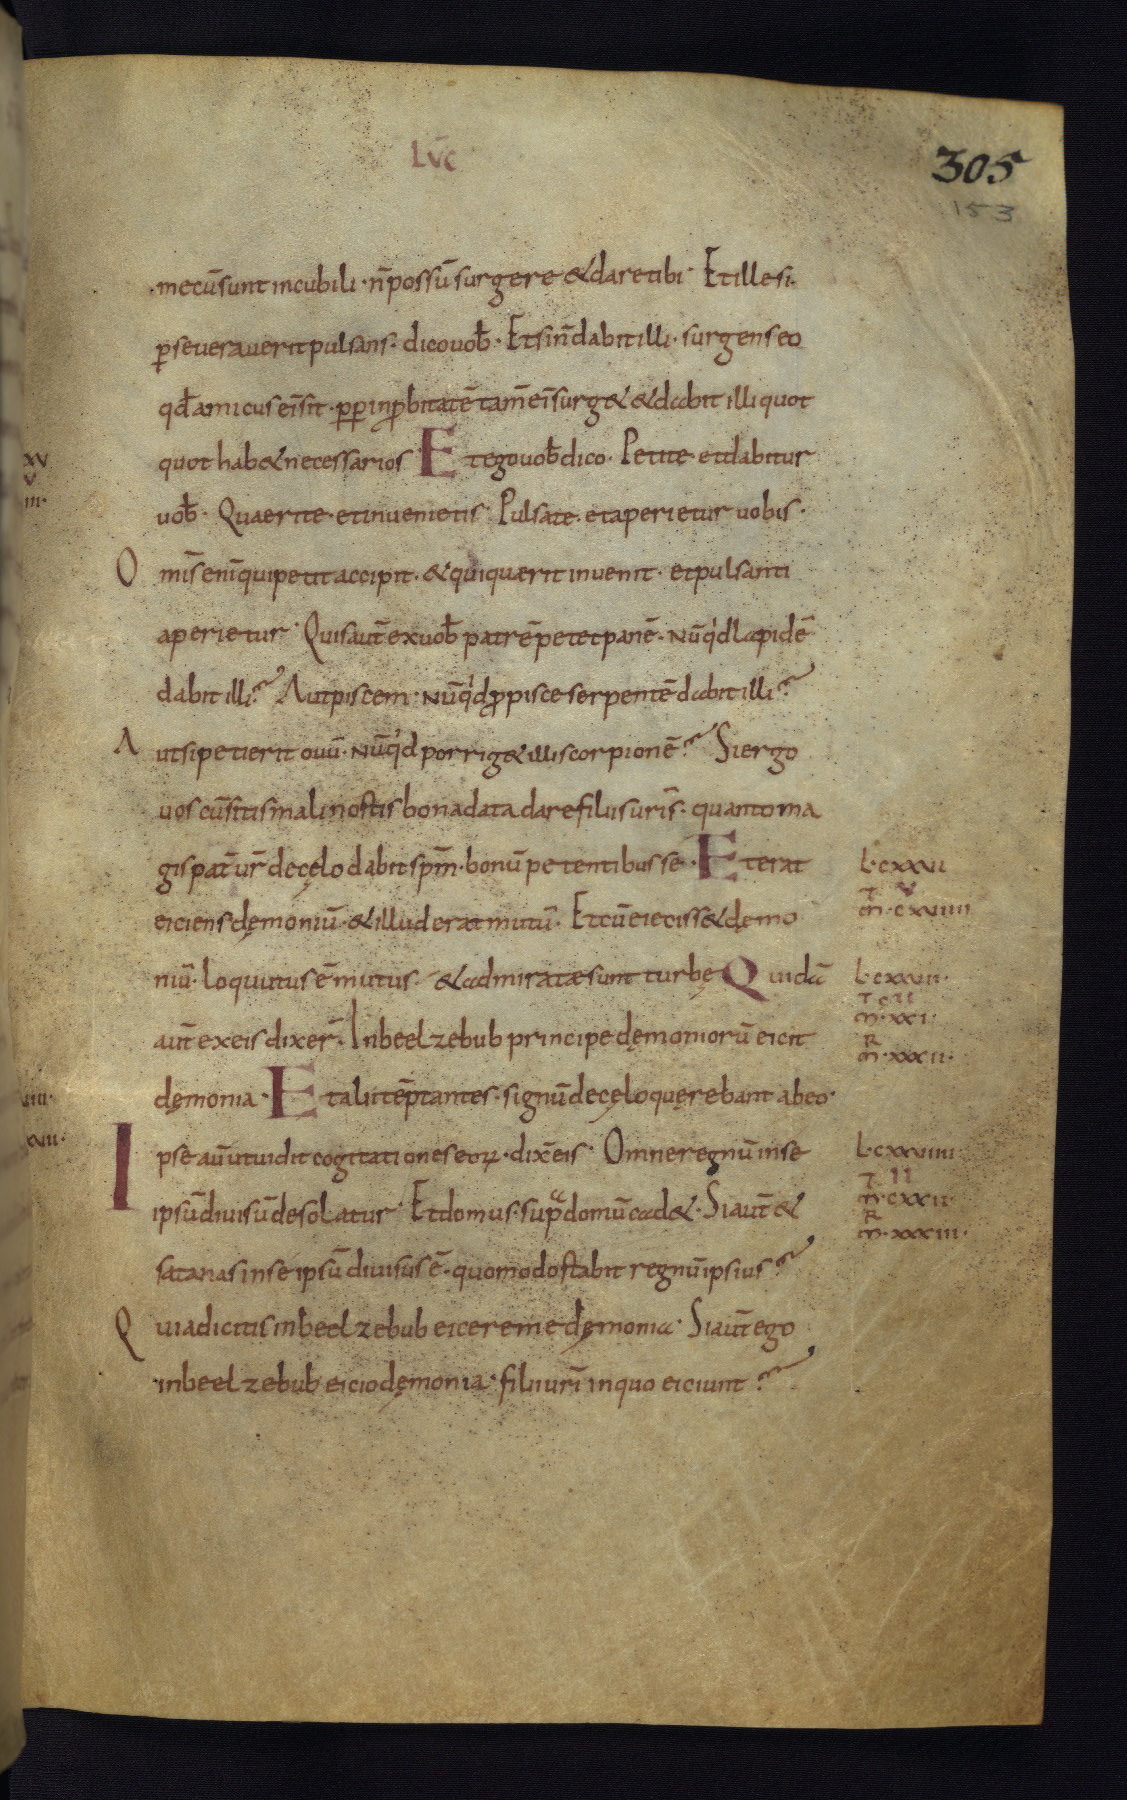 LVC̄
305
153
mecū sunt in cubili · n̄ possū surgere & dare tibi · Et ille si
ꝑseueraverit pulsans · dico uob̄ · Et si n̄ dabit illi · surgens eo
qđ amicus ei̅ sit · ꝓꝑ inꝓbitatē tam̄ ei̅ surg& & dabit illi quot
quot hab& necessarios Et ego uob̄ dico · Petite et dabitur
uob̄ · Quaerite et invenietis · Pulsate et aperietur uobis ·
Omīs enī qui petit accipit · & qui querit invenit · et pulsanti
aperietur · Quis aut̄ ex uob̄ patrē petet panē · Nūq'd lapidē
dabit illi? Aut piscem · Nūq'd ꝓ pisce serpentē dabit illi?
Aut si petierit ovū · Nūq'd porrig& illi scorpionē? Si ergo
vos cū sitis mali nostis bona data dare filiis urīs · quanto ma
gis pat̄ ur̄ de cęlo dabit spm̄ · bonū petentibus se · Et erat
eiciens dęmoniū · & illud erat mutū · Et cū eieciss& dęmo
niū · loquutus ē mutus · & admiratae sunt turbę Quidā
aut̄ ex eis dixer̄ · In beelzebub principe dęmoniorū eicit
dęmonia · Et alii tēptantes · signū de cęlo quęrebant ab eo ·
Ipse au̅ ut vidit cogitationes eoꝝ · dix̄ eis · Omne regnū in se
ipsū divisū desolatur · Et domus · supͣ domū cad& · Si aut̄ &
satanas in se ipsū divisus ē · quomodo stabit regnū ipsius?
Quia dicitis in beelzebub eicere me dęmonia · Si aut̄ ego
in beelzebub eicio dęmonia · filii urī in quo eiciunt?
XV
V
III·
L·cxxvi
m̄·cxviiii
L·cxxvii·
m̄·xxi·
R
m̄·xxxii·
L·cxxviiii
m̄·cxxii·
R
m̄·xxxiii·